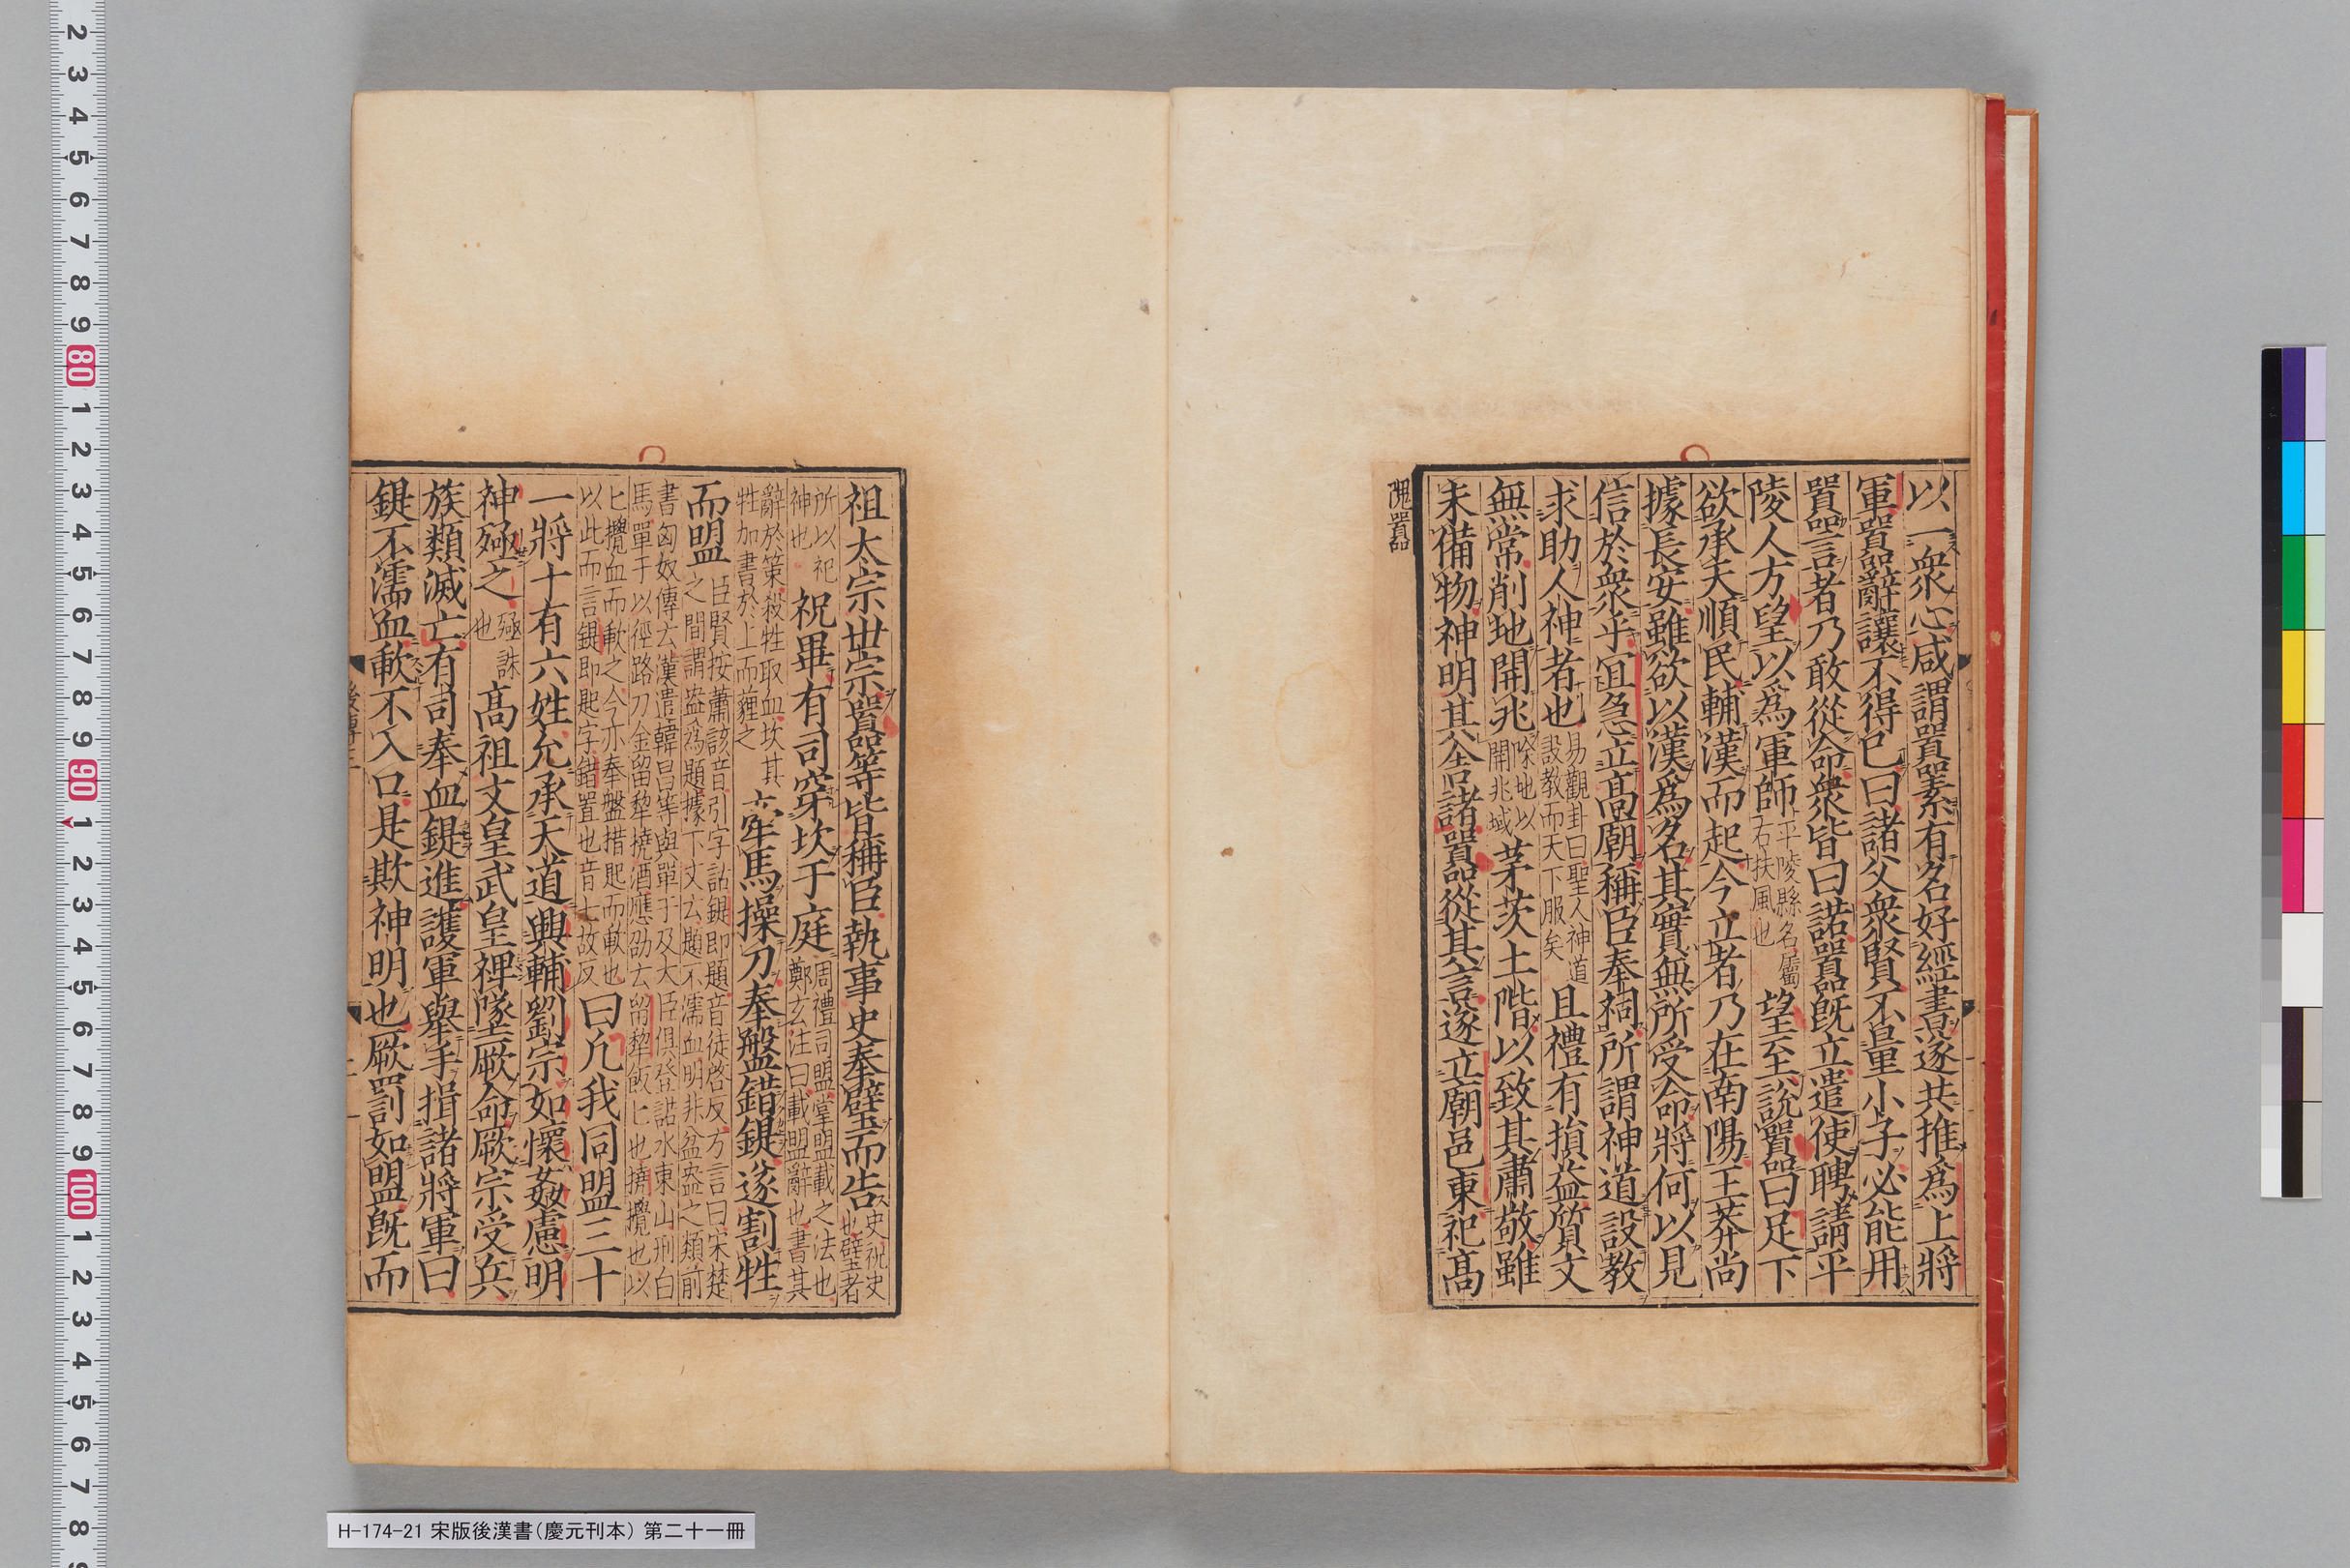 以一衆心咸謂囂素有名好經書遂共推爲上將
軍囂辭讓不得已曰諸父衆賢不量小子必能用
囂言者乃敢從命衆皆曰諾囂旣立遣使聘請平
陵人方望以爲軍師平陵縣名屬右扶風也望至說囂曰足下
欲承天順民輔漢而起今立者乃在南陽王莽尚
據長安雖欲以漢爲名其實無所受命將何以見
信於衆乎宜急立高廟稱臣奉祠所謂神道設教
求助人神者也易觀卦曰聖人神道設教而天下服矣且禮有損益質文
無常削地開兆除地以開兆域茅茨土階以致其肅敬雖
未備物神明其舍諸囂從其言遂立廟邑東祀高
隗囂
祖太宗世宗囂等皆稱臣執事史奉璧而告史祝史也璧者
所以祀神也祝畢有司穿坎于庭周禮司盟掌盟載之法也鄭玄注曰載盟辭也書其
辭於策殺牲取血坎其牲加書於上而薶之牽馬操刀奉盤錯鍉遂割牲
而盟臣賢按蕭該音引字詁鍉即題音徒啓反方言曰宋楚之間謂盎爲題據下文云鍉不濡血明非盆盎之類前
書匈奴傳云漢遣韓昌等與單于及大臣俱登諾水東山刑白馬單于以徑路刀金留犂撓酒應劭云留犂飯匕也撓攪也以
匕攪血而歃之今亦奉盤措匙而歃也以此而言鍉即匙字錯置也音七故反曰凡我同盟三十
一將十有六姓允承天道興輔劉宗如懷姦慮明
神殛之殛誅也高祖文皇武皇俾墜厥命厥宗受兵
族類滅亡有司奉血鍉進護軍舉手揖諸將軍曰
鍉不濡血歃不入口是欺神明也厥罰如盟旣而
後傳三
H-174-21 宋版後漢書(慶元刊本) 第二十一冊